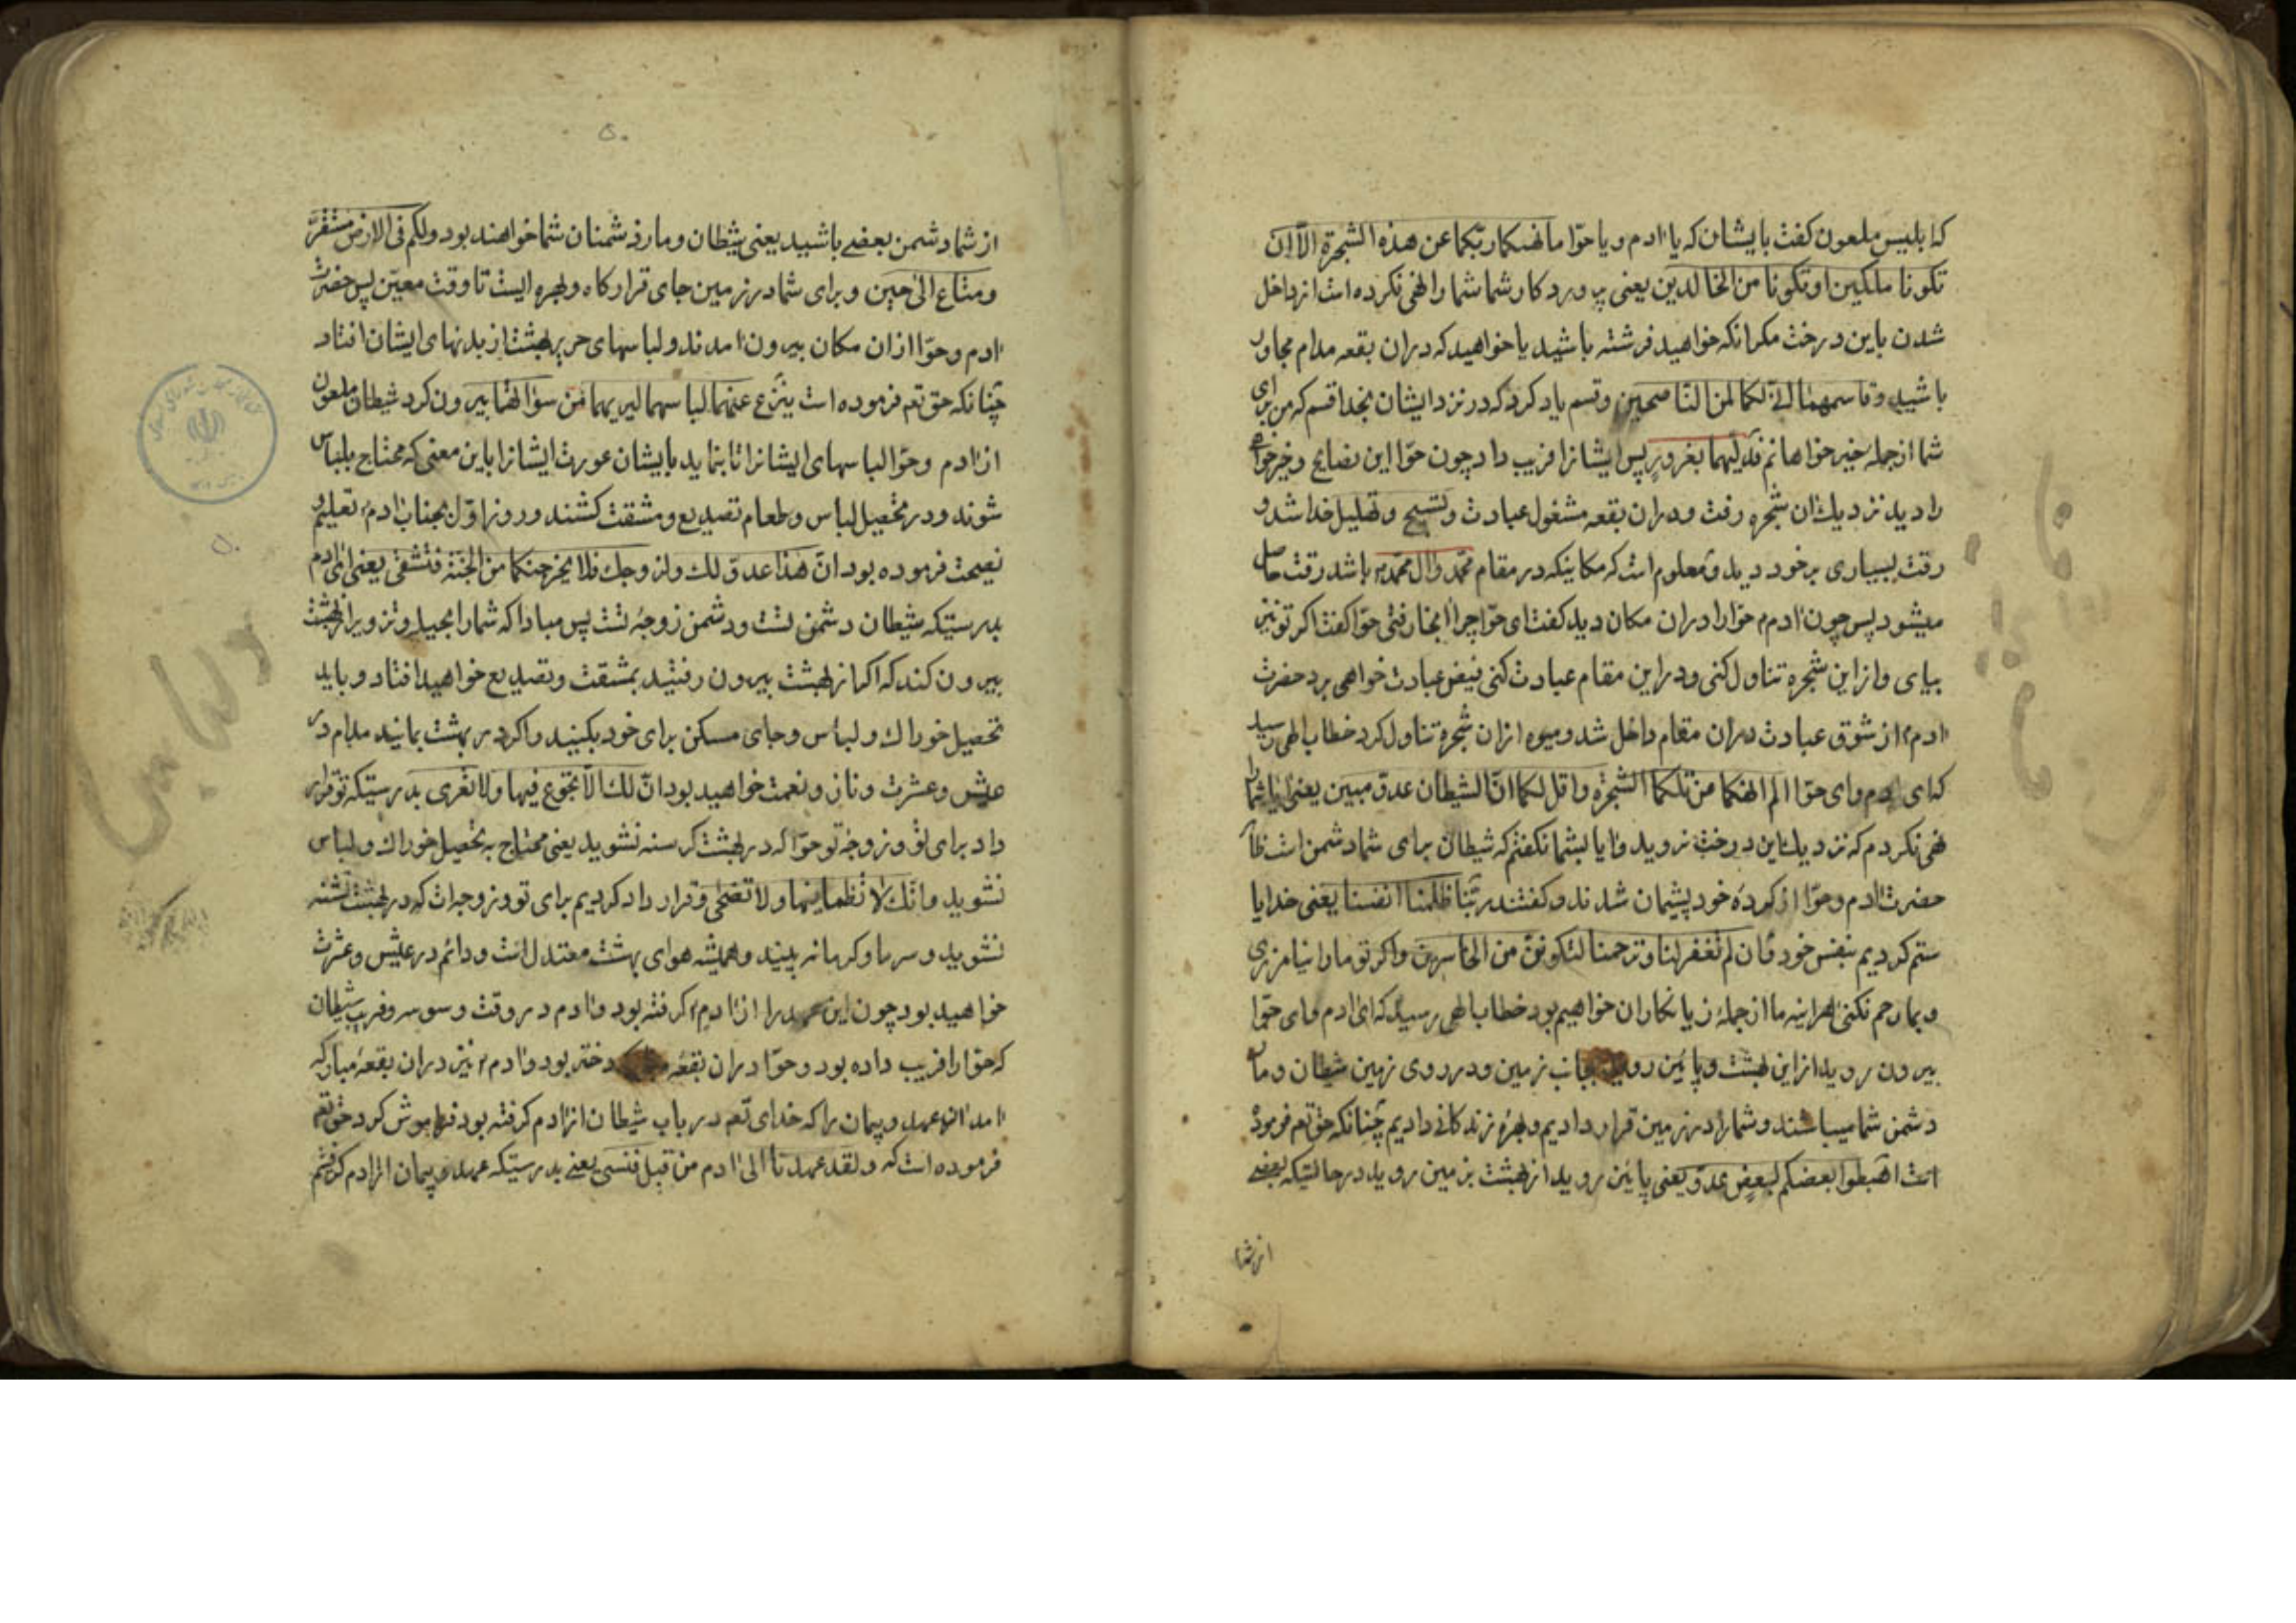 که ابلیس ملعون کفت بایشان که یا ادم و یا حوّا ما نهیکما ربّکما عن هذه الشجرة الّا ان
تکونا ملکین او تکونا من الخالدین یعنی پروردکار شما شما را نهی نکرده است از داخل
شدن باین درخت مکر انکه خواهید فرشته باشید یا خواهید که دران بقعه مدام مجاور
باشید و قاسمهما انّی لکما لمن النّاصحین و قسم یاد کرد که در نزد ایشان بخدا قسم که من برای
شما از جملهٔ خیر خواهانم فدلّیهما بغرور پس ایشانرا فریب داد چون حوّا این نصایح و خیر خواه
را دید نزدیك ان شجره رفت و دران بقعه مشغول عبادت و تسبیح و تهلیل خدا شد و
رقت بسیاری بر خود دید و معلوم است که مکانیکه در مقام محمّد و ال محمّد باشد رقت حاصل
میشود پس چون ادم حوّا را دران مکان دید کفت ای حوّا چرا اینجا رفتی حوّا کفت اکر تو نیز
بیای و از این شجره تناول کنی و در این مقام عبادت کنی فیض عبادت خواهی برد حضرت
ادم از شوق عبادت دران مقام داخل شد و میوه ازان شجره تناول کرد خطاب الهی رسید
که ای ادم و ای حوّا الم انهکما من تلکما الشجرة و اقل لکما انّ الشیطان عدوّ مبین یعنی ایا شما را
نهی نکردم که نزدیك این درخت نروید و ایا بشما نکفتم که شیطان برای شما دشمن است
حضرت ادم و حوّا از کردهٔ خود پشیمان شدند و کفتند ربّنا ظلمنا انفسنا یعنی خدایا
ستم کردیم بنفس خود و ان لم تغفر لنا و ترحمنا لنکوننّ من الخاسرین و اکر تو ما را نیامرزی
و بما رحم نکنی هراینه ما از جملهٔ زیانکاران خواهیم بود خطاب الهی رسید که ای ادم و ای حوّا
بیرون روید از این بهشت و پائین روید بجانب زمین و در روی زمین شیطان و مار
دشمن شما میباشند و شما را در زمین قرار دادیم و بهرهٔ زندکانی دادیم چنانکه حق تعم فرموده
است اهبطوا بعضکم لبعض عدوّ یعنی پائین روید از بهشت بزمین روید در حالتیکه بعضی
از شما
۵۰
از شما دشمن بعضی باشید یعنی شیطان و مار دشمنان شما خواهند بود و لکم فی الارض مستقرّ
و متاع الی حین و برای شما در زمین جای قرار کاه و بهره ایست تا وقت معیّن پس حضرت
ادم و حوّا ازان مکان بیرون امدند و لباسهای حریر بهشت از بدنهای ایشان افتاد
چنانکه حق تعم فرموده است ینزع عنهما لباسهما لیریهما سواتهما بیرون کرد شیطان ملعون
از ادم و حوّا لباسهای ایشانرا تا بنماید بایشان عورت ایشانرا باین معنی که محتاج بلباس
شوند و در تحصیل لباس و طعام تصدیع و مشقت کشند و روز اوّل بجناب ادم تعلیم و
نصیحت فرموده بود انّ هذا عدوّ لك و لزوجك فلا یخرجنکما من الجنّة فتشقی یعنی ای ادم
بدرستیکه شیطان دشمن تست و دشمن زوجهٔ تست پس مبادا که شما را بحیله و تزویر از بهشت
بیرون کند که اکر از بهشت بیرون رفتید بمشقت و تصدیع خواهید افتاد و باید
تحصیل خوراك و لباس و جای مسکن برای خود بکنید و اکر در بهشت بمانید مدام در
عیش و عشرت و ناز و نعمت خواهید بود انّ لك الّا تجوع فیها و لا تعری بدرستیکه تو قرار
داد برای تو و زوجه تو حوّا که در بهشت کرسنه نشوید یعنی محتاج به تحصیل خوراك و لباس
نشوید و انّك لا تظما فیها و لا تضحی و قرار داد کردیم برای تو و زوجه‌ات که در بهشت تشنه
نشوید و سرما و کرما نه بینید و همیشه هوای بهشت معتدل است و دائم در عیش و عشرت
خواهید بود چون این عهد را از ادم کرفته بود و ادم در وقت وسوسه و فریب شیطان
که حوّا را فریب داده بود و حوّا دران بقعه دختر بود و ادم نیز دران بقعهٔ مبارکه
امد ان عهد و پیمان را که خدای تعم در باب شیطان از ادم کرفته بود فراموش کرد حق تعم
فرموده است که و لقد عهدنا الی ادم من قبل فنسی یعنی بدرستیکه عهد و پیمان از ادم کرفتم